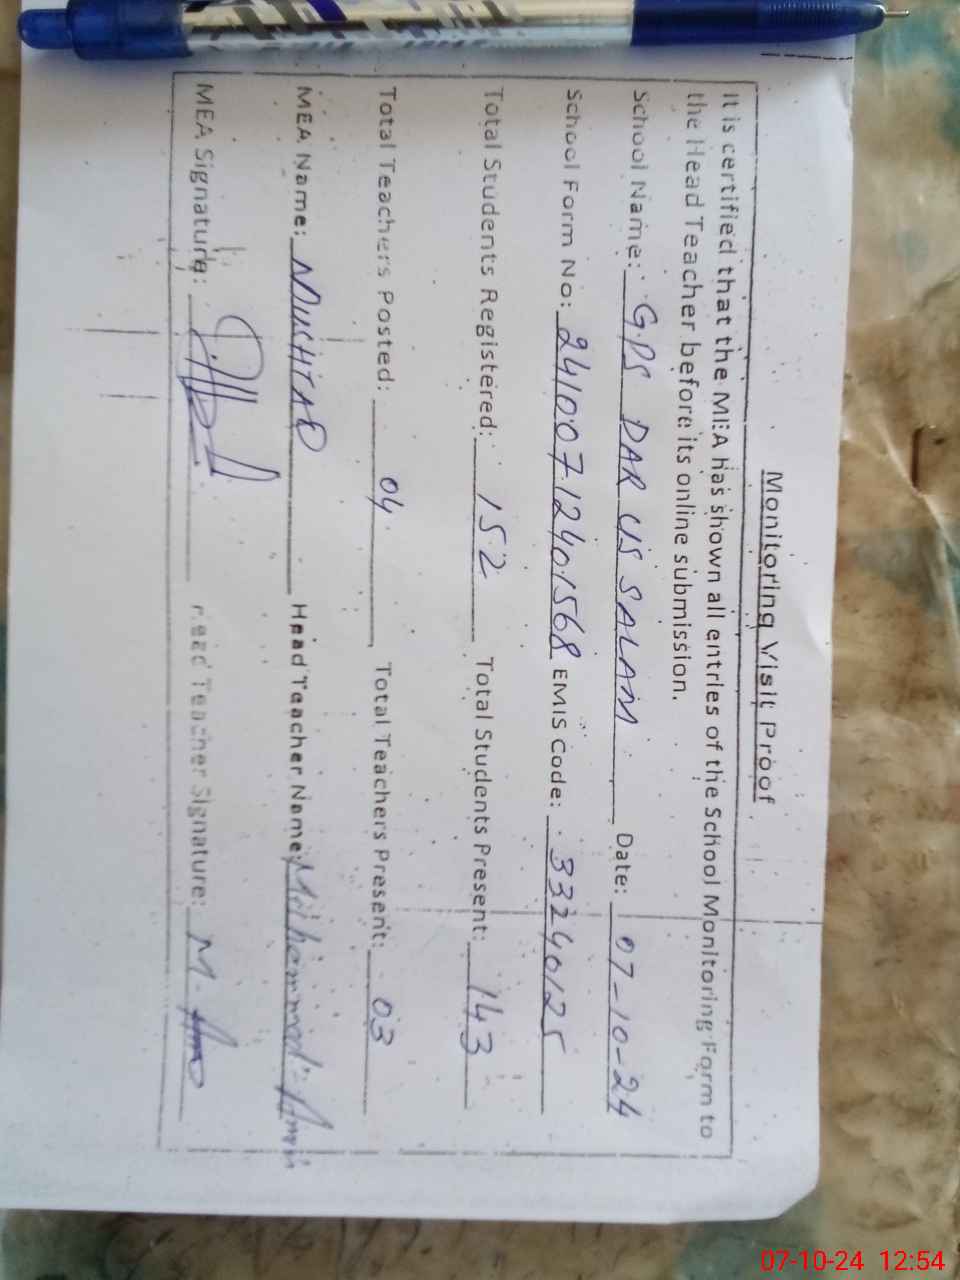 Monitoring Visit Proof
It is certified that the MEA has shown all entries of the School Monitoring Form to
the Head Teacher before its online submission.
School Name: G.PS DAR US SALAM Date: 07-10-24
School Form No: 241007.1240.1568 EMIS Code: 33240125
Total Students Registered: 152 Total Students Present: 143
Total Teachers Posted: 04 Total Teachers Present: 03
MEA Name: MUSHTAQ Head Teacher Name: Muhammad Amin
MEA Signature: Head Teacher Signature: M.
07-10-24 12:54